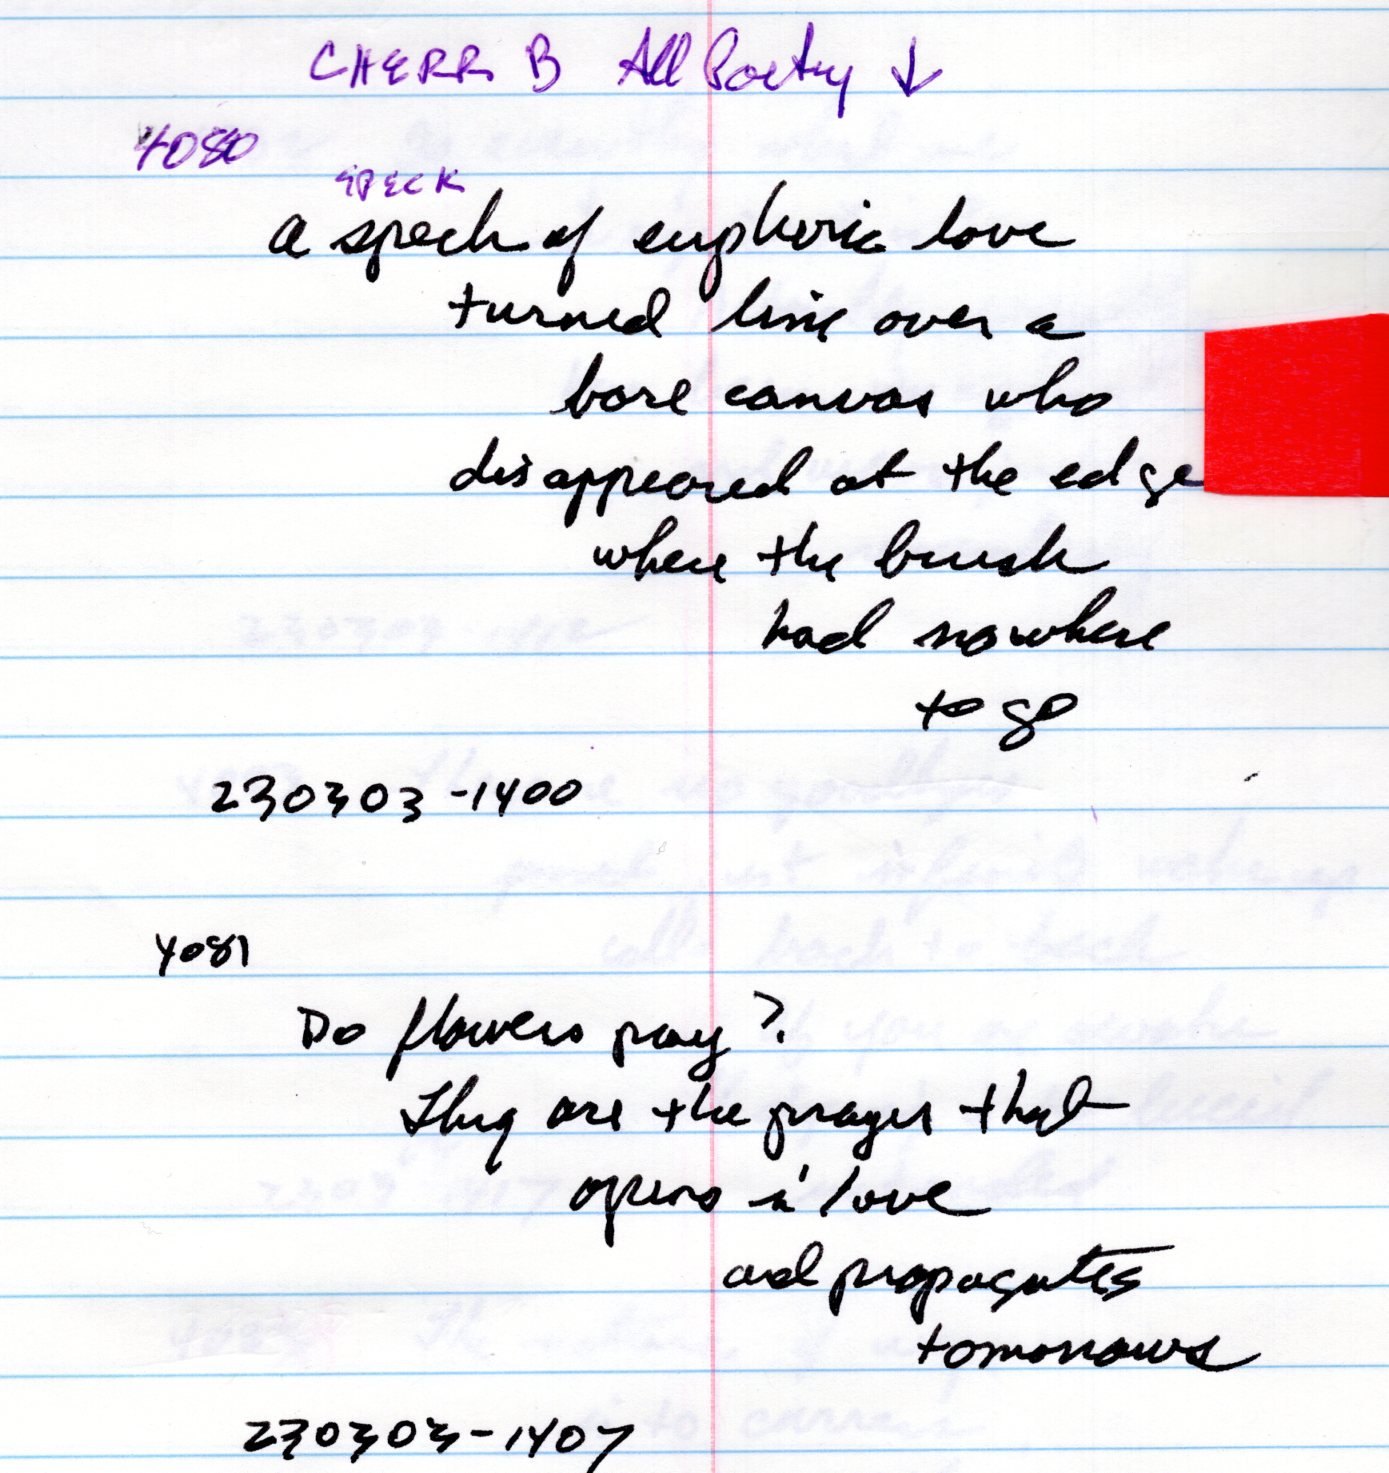 CHERR B All Poetry ↓
4080
SPECK
a speck of euphoric love
turned line over a
bare canvas who
disappeared at the edge
where the brush
had nowhere
to go
230303-1400
4081
Do flowers pray?
They are the prayer that
opens in love
and propagates
tomorrows
230303-1407